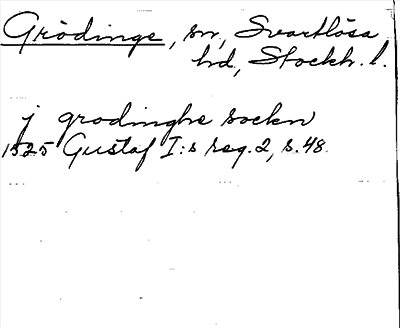 Grödinge, sn, Svartlösa
hd, Stockh. l.
j grodinghe sockn
1525 Gustaf I:s reg. 2, s. 48.